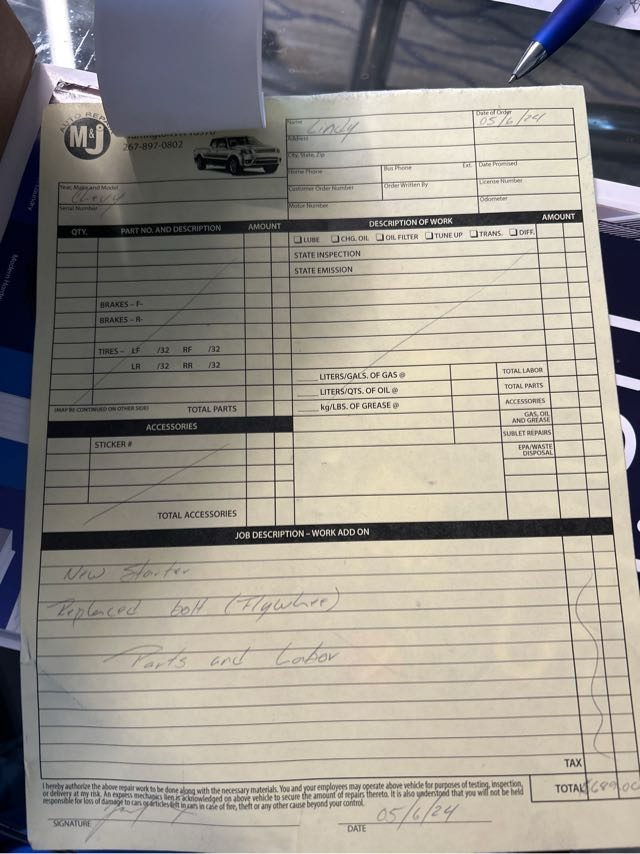 AUTO REPAIR
M&J
267-897-0802
Name
Cindy
Date of Order
05/6/24
Address
City, State, Zip
Home Phone
Bus Phone
Ext.
Date Promised
Year, Make and Model
Chevy
Customer Order Number
Order Written By
License Number
Serial Number
Motor Number
Odometer
QTY. PART NO. AND DESCRIPTION AMOUNT
DESCRIPTION OF WORK AMOUNT
LUBE CHG. OIL OIL FILTER TUNE UP TRANS. DIFF.
STATE INSPECTION
STATE EMISSION
BRAKES – F-
BRAKES – R-
TIRES – LF /32 RF /32
LR /32 RR /32
(MAY BE CONTINUED ON OTHER SIDE) TOTAL PARTS
LITERS/GALS. OF GAS @
LITERS/QTS. OF OIL @
kg/LBS. OF GREASE @
TOTAL LABOR
TOTAL PARTS
ACCESSORIES
GAS, OIL
AND GREASE
SUBLET REPAIRS
EPA/WASTE
DISPOSAL
ACCESSORIES
STICKER #
TOTAL ACCESSORIES
JOB DESCRIPTION – WORK ADD ON
New Starter
Replaced bolt (Flywhee)
Parts and Labor
TAX
TOTAL $689.00
I hereby authorize the above repair work to be done along with the necessary materials. You and your employees may operate above vehicle for purposes of testing, inspection,
or delivery at my risk. An express mechanics lien is acknowledged on above vehicle to secure the amount of repairs thereto. It is also understood that you will not be held
responsible for loss of damage to cars or articles left in cars in case of fire, theft or any other cause beyond your control.
SIGNATURE
DATE 05/6/24